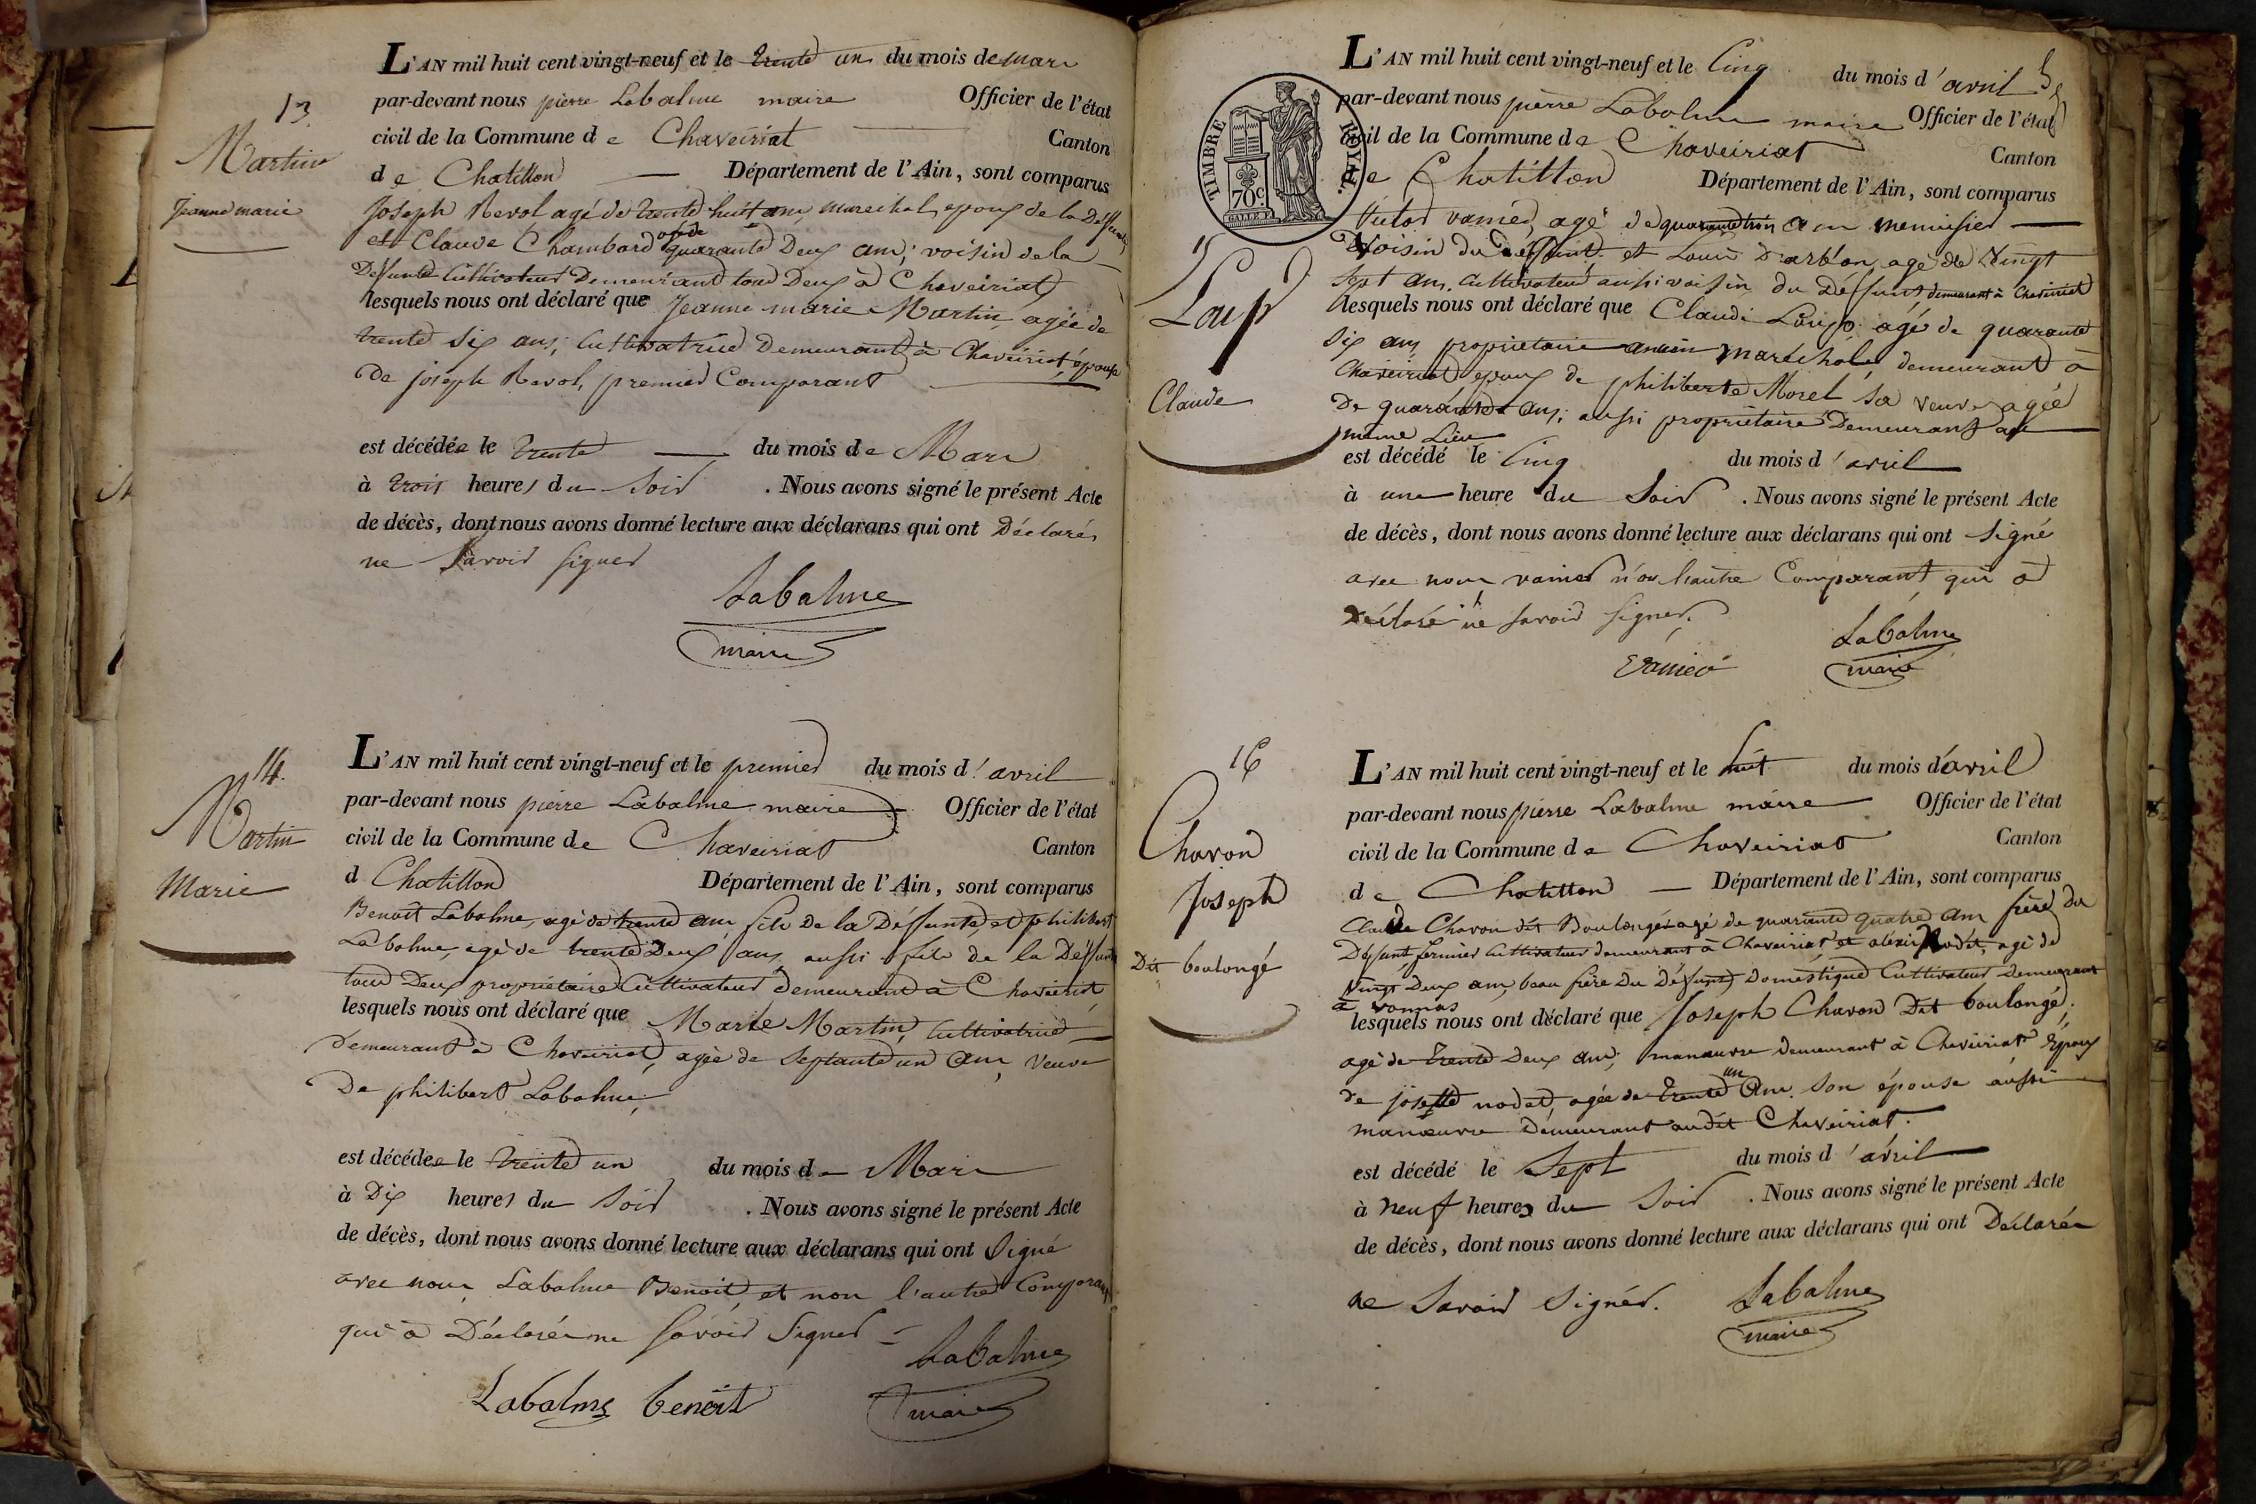 13
Martin
Jeanne marie
L'AN mil huit cent vingt-neuf et le trente un du mois de mars
par-devant nous pierre Labalme maire Officier de l'état
civil de la Commune de Chaveiriat Canton
de Chatillon Département de l'Ain, sont comparus
Joseph Revol agé de trente huit ans marechal, epoux de la Deffunte
et Claude Chambard agé de quarante Deux ans; voisin de la
Deffunte Cultivateur Demeurant tous Deux à Chaveiriat
lesquels nous ont déclaré que Jeanne marie Martin, agée de
trente six ans, Cultivatrice Demeurant à Chaveiriat, épouse
De joseph Revol, premier Comparant
est décédée le trente du mois de Mars
à trois heures du soir . Nous avons signé le présent Acte
de décès, dont nous avons donné lecture aux déclarans qui ont Déclarés
ne Savoir signer
Labalme
maire
14.
Martin
Marie
L'AN mil huit cent vingt-neuf et le premier du mois d'avril
par-devant nous pierre Labalme maire Officier de l'état
civil de la Commune de Chaveiriat Canton
d Chatillon Département de l'Ain, sont comparus
Benoit Labalme, agé de trente ans fils De la Déffunte, et philibert
Labalme, agé de trente Deux ans, aussi fils de la Déffunte
tous Deux propriétaire Cultivateur demeurant à Chaveiriat
lesquels nous ont déclaré que Marie Martin, Cultivatrice
Demeurant à Chaveiriat, agée de septante un ans, veuve
De philibert Labalme,
est décédée le trente un du mois de Mars
à Dix heures du soir . Nous avons signé le présent Acte
de décès, dont nous avons donné lecture aux déclarans qui ont signé
avec nous Labalme Benoit, et non l'autre Comparant
qui a Déclarée ne savoir Signer
Labalme
maire
Labalme benoit
TIMBRE ROYAL.
70c.
15
Loup
Claude
L'AN mil huit cent vingt-neuf et le Cinq du mois d'avril
par-devant nous pierre Labalme maire Officier de l'état
civil de la Commune de Chaveiriat Canton
de Chatillon Département de l'Ain, sont comparus
Victor vanier, agé de quarante trois ans menuisier
Voisin du deffunt et Louis Darbon agé de Vingt
sept ans, Cultivateur aussi voisin du Déffunt, demeurant à Chaveiriat
lesquels nous ont déclaré que Claude Loup agé de quarante
six ans propriétaire ancien maréchale, demeurant à
Chaveiriat epoux de philiberte Morel sa veuve agée
De quarante ans; aussi propriétaire Demeurant au
même Lieu
est décédé le Cinq du mois d'avril
à une heure du Soir . Nous avons signé le présent Acte
de décès, dont nous avons donné lecture aux déclarans qui ont signé
avec nous vanier non l'autre Comparant, qui a
Déclaré ne savoir signer.
Labalme
maire
vanier
16
Chavon
Joseph
Dit boulongé
L'AN mil huit cent vingt-neuf et le huit du mois d'avril
par-devant nous pierre Labalme maire Officier de l'état
civil de la Commune de Chaveiriat Canton
de Chatillon Département de l'Ain, sont comparus
Claude Chavon dit Boulongé agé de quarante quatre ans frère du
Défunt fermier Cultivateur demeurant à Chaveiriat et alexis Nodet, agé de
vingt Deux ans, beau frère Du Défunt, Domestique Cultivateur Demeurant
à vonnas
lesquels nous ont déclaré que Joseph Chavon Dit boulongé,
agé de trente Deux ans, manœuvre demeurant à Chaveiriat Epoux
de josette nodet, agée de trente un ans. son épouse aussi
manœuvre Demeurant audit Chaveiriat.
est décédé le Sept du mois d'avril
à neuf heures du soir . Nous avons signé le présent Acte
de décès, dont nous avons donné lecture aux déclarans qui ont Déclarés
ne Savoir Signer.
Labalme
maire